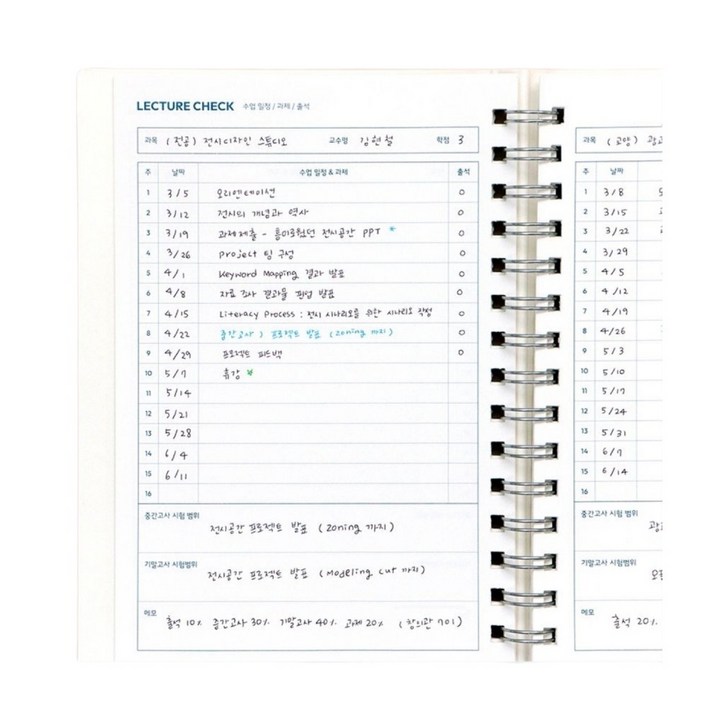 LECTURE CHECK 수업 일정 / 과제 / 출석
과목 (전공) 전시디자인 스튜디오 교수명 김현철 학점 3
주 날짜 수업 일정 & 과제 출석
1 3/5 오리엔테이션 O
2 3/12 전시의 개념과 역사 O
3 3/19 과제제출 - 흥미로웠던 전시공간 PPT * O
4 3/26 Project 팀 구성 O
5 4/1 Keyword Mapping 결과 발표 O
6 4/8 자료조사 결과물 팀업 발표 O
7 4/15 Literacy Process : 전시 시나리오를 위한 시나리오 작성 O
8 4/22 중간고사 ) 프로젝트 발표 (zoning 까지) O
9 4/29 프로젝트 피드백 O
10 5/7 휴강
11 5/14
12 5/21
13 5/28
14 6/4
15 6/11
16
중간고사 시험 범위
전시공간 프로젝트 발표 (zoning 까지)
기말고사 시험범위
전시공간 프로젝트 발표 (Modeling cut 까지)
메모
출석 10% 중간고사 30% 기말고사 40% 과제 20% (창의관 701)
과목 (교양)
주 날짜
1 3/8
2 3/15
3 3/22
4 3/29
5 4/5
6 4/12
7 4/19
8 4/26
9 5/3
10 5/10
11 5/17
12 5/24
13 5/31
14 6/7
15 6/14
16
중간고사 시험 범위
기말고사 시험범위
메모
출석 20%